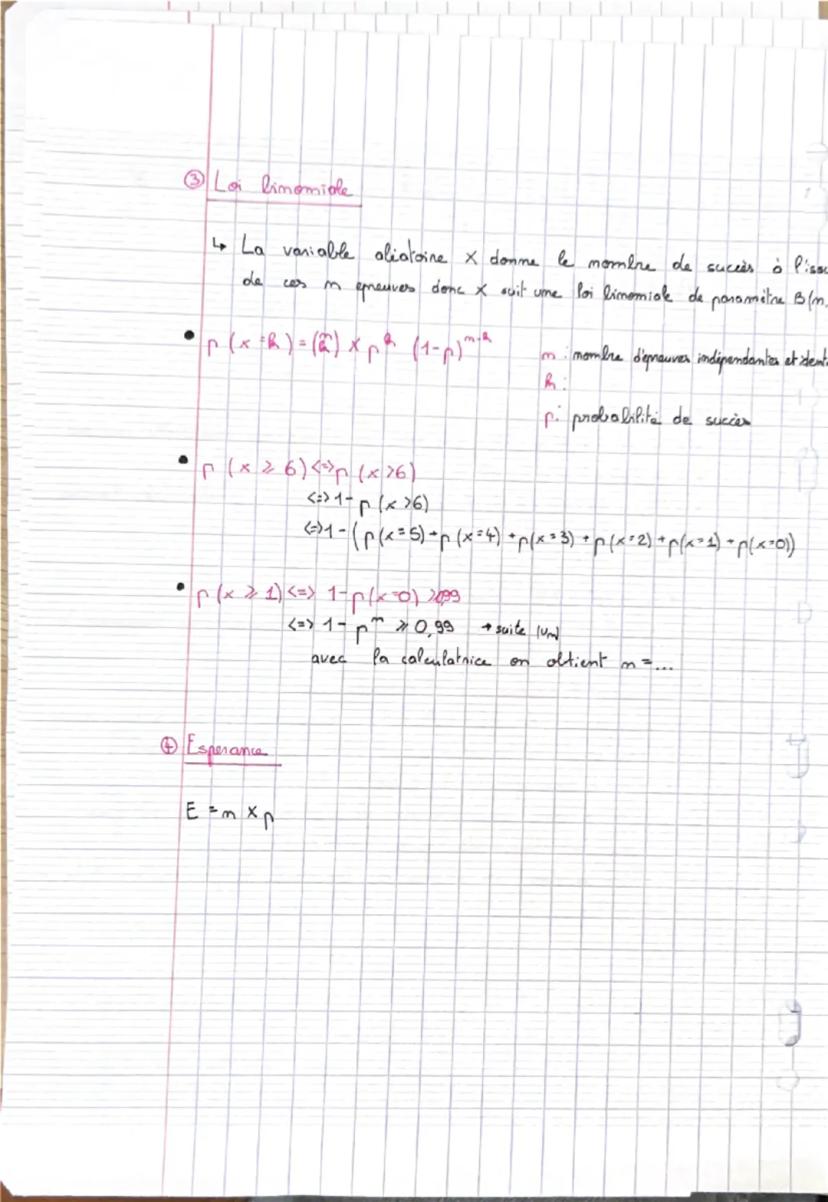 ③ Loi binomiale
↳ La variable aliatoire X donne le nombre de succès à l'issu
de ces n epreuves donc X suit une loi binomiale de paramètre B(n,
• p(x=k) = (n k) × p^k (1-p)^n-k
n : nombre d'épreuves indépendantes et identi
k :
p : probabilité de succès
• p(x ≥ 6) <=> p(x >6)
<=> 1- p(x >6)
<=> 1-(p(x=5)+p(x=4)+p(x=3)+p(x=2)+p(x=1)+p(x=0))
• p(x ≥ 1) <=> 1-p(x=0) ≥0,99
<=> 1- p^n ≥ 0,99 → suite (un)
avec la calculatrice on obtient n =...
④ Esperance
E = n × p